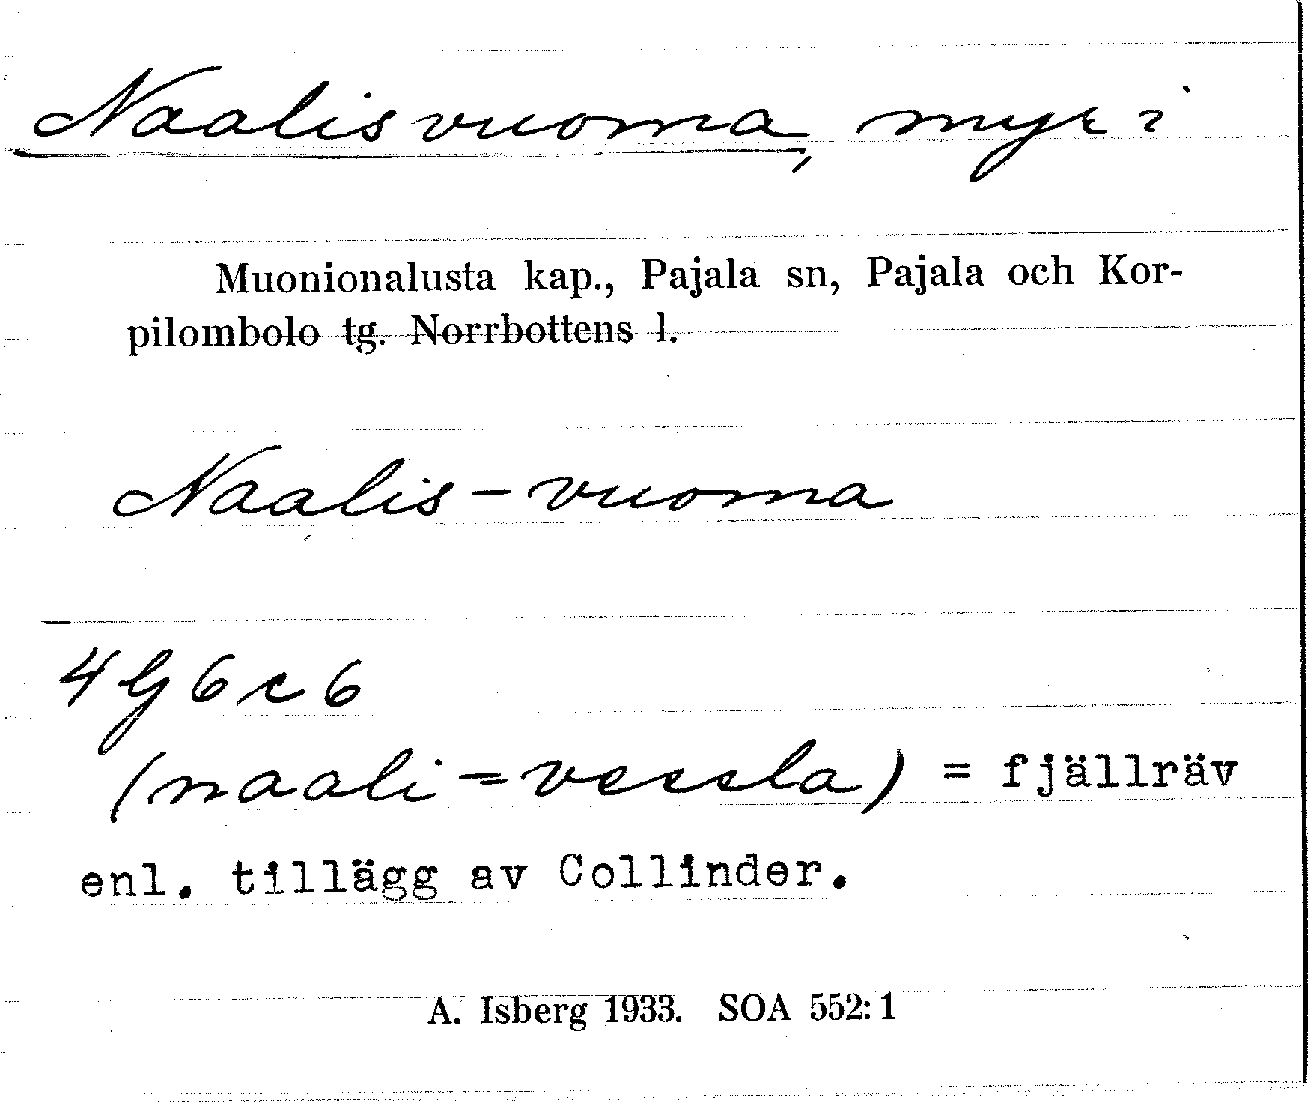 Naalisvuoma, myr i
Muonionalusta kap., Pajala sn, Pajala och Kor-
pilombolo tg. Norrbottens l.
Naalis-vuoma
4 G 6 c 6
(naali = vessla) = fjällräv
enl. tillägg av Collinder.
A. Isberg 1933. SOA 552:1